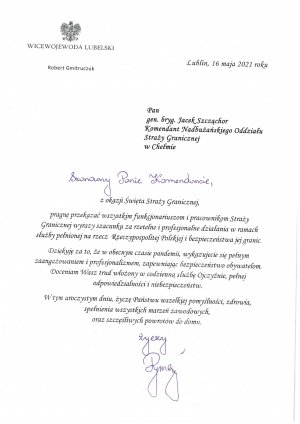 WICEWOJEWODA LUBELSKI
Robert Gmitruczuk
Lublin, 16 maja 2021 roku
Pan
gen. bryg. Jacek Szcząchor
Komendant Nadbużańskiego Oddziału
Straży Granicznej
w Chełmie
Szanowny Panie Komendancie,
z okazji Święta Straży Granicznej,
pragnę przekazać wszystkim funkcjonariuszom i pracownikom Straży
Granicznej wyrazy szacunku za rzetelne i profesjonalne działania w ramach
służby pełnionej na rzecz Rzeczypospolitej Polskiej i bezpieczeństwa jej granic.
Dziękuję za to, że w obecnym czasie pandemii, wykazujecie się pełnym
zaangażowaniem i profesjonalizmem, zapewniając bezpieczeństwo obywatelom.
Doceniam Wasz trud włożony w codzienną służbę Ojczyźnie, pełnej
odpowiedzialności i niebezpieczeństw.
W tym uroczystym dniu, życzę Państwu wszelkiej pomyślności, zdrowia,
spełnienia wszystkich marzeń zawodowych,
oraz szczęśliwych powrotów do domu.